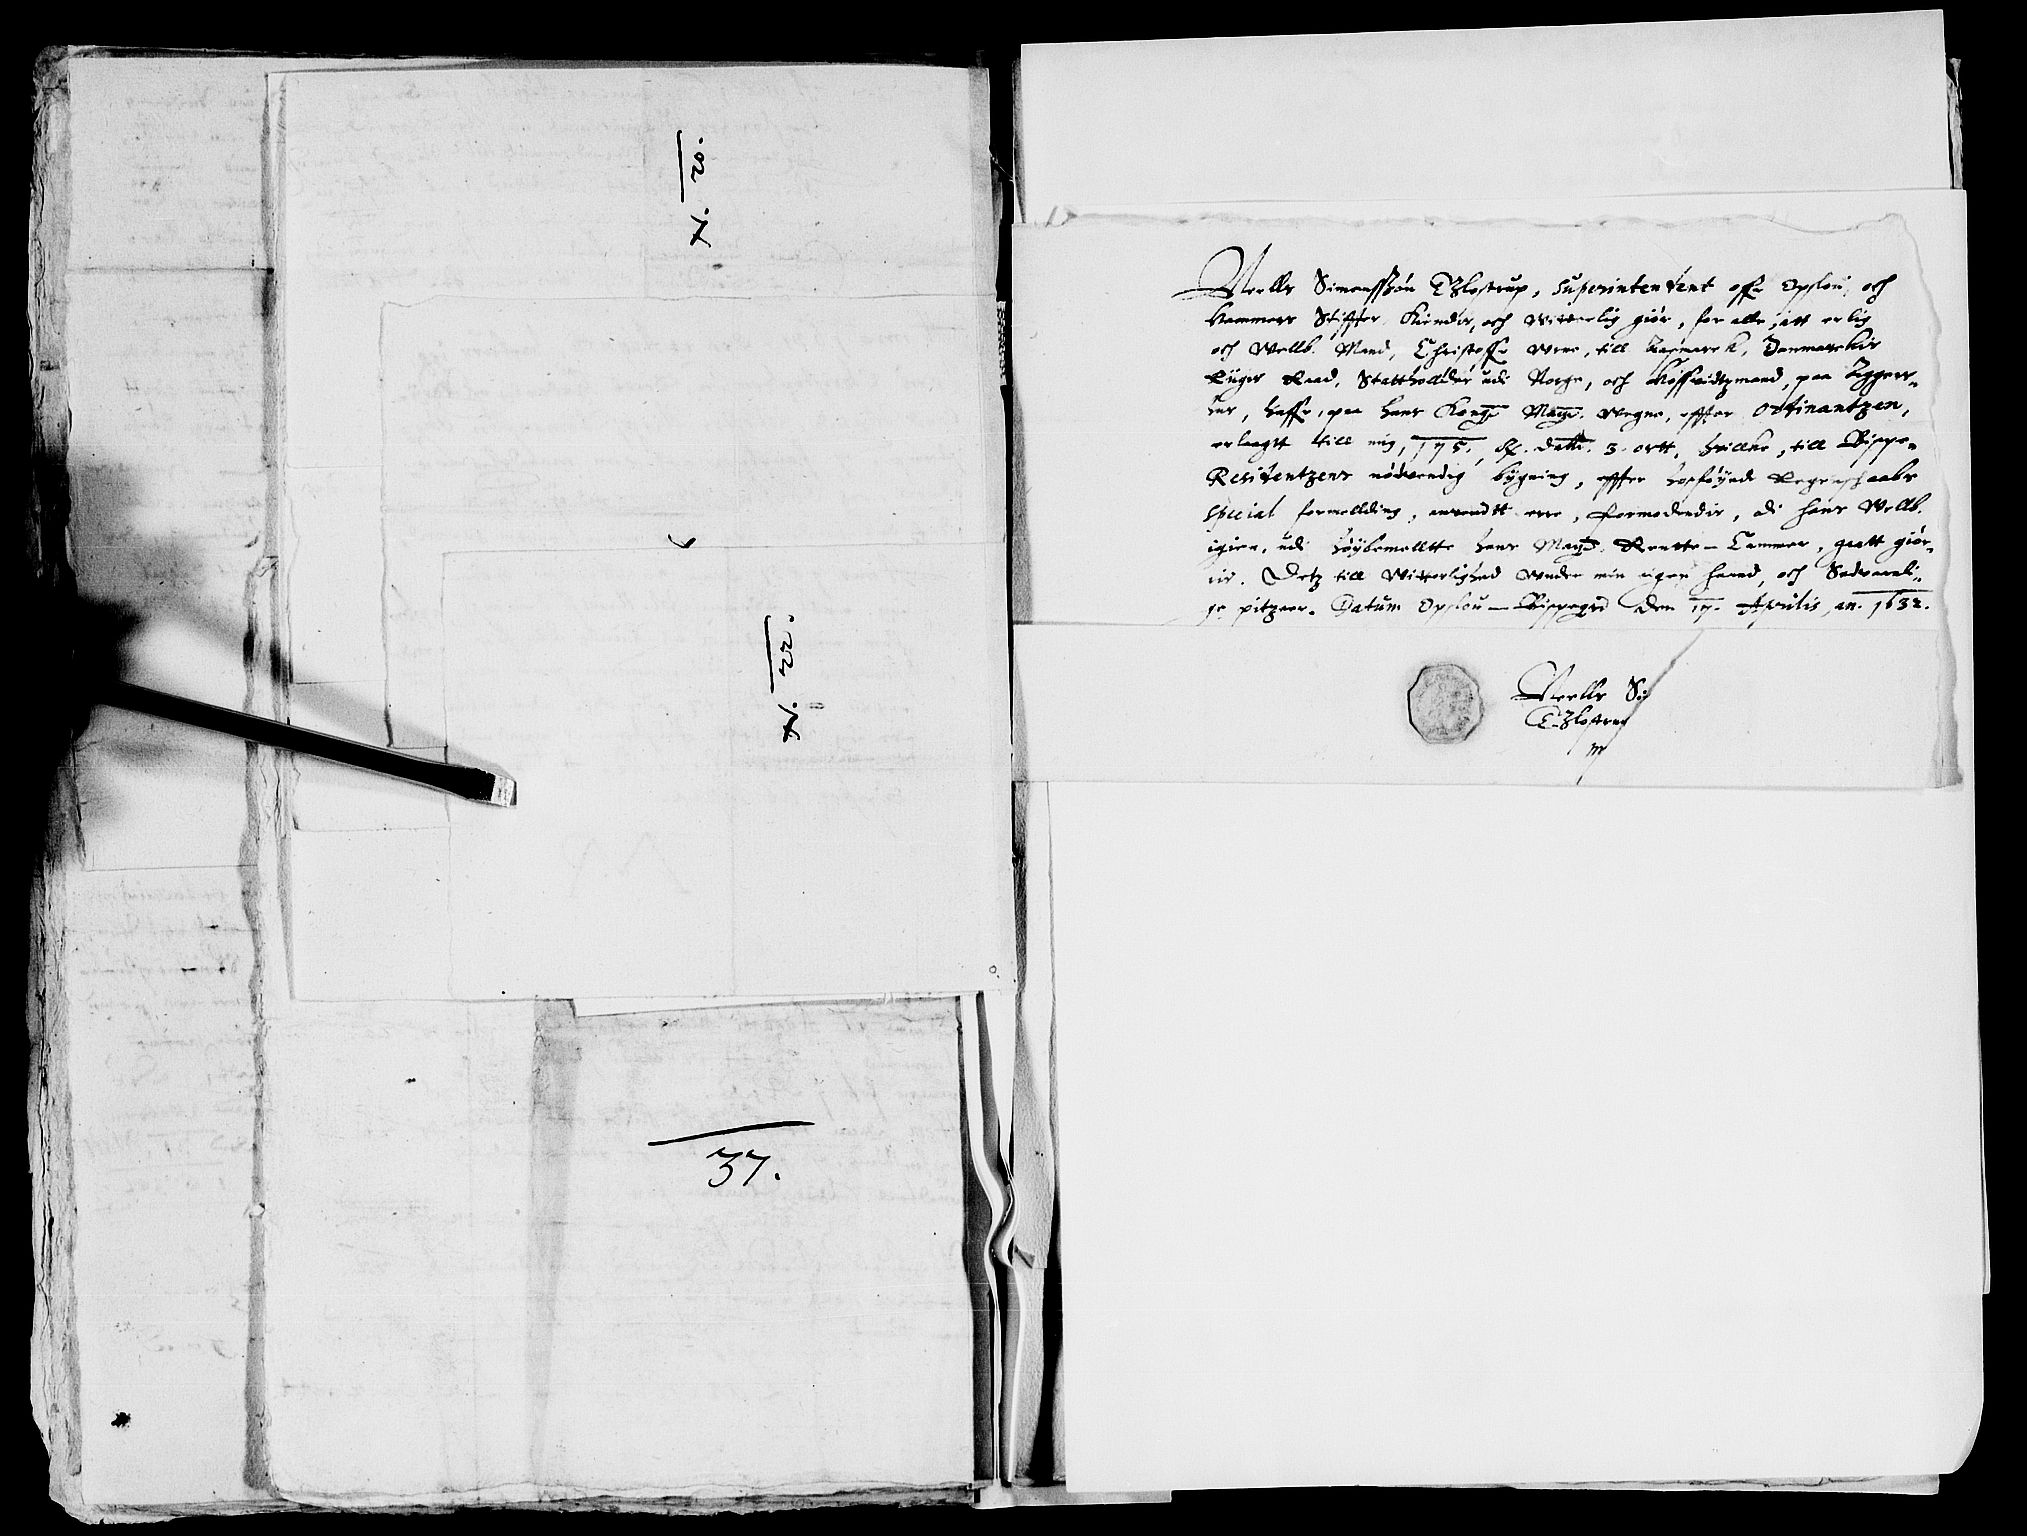 N. 20.
N. 22.
37.
Niells Simenssøn Glostrup, Superintendent offr Opslou, och
Hammers Stiffter, Kiendis, och witterlig giør, for alle, att erlig
och Wellb. Mand, Christoffr Urne, till Aasmarck, Danmarckis
Rigis Raad, Stattholder udi Norge, och Høffuidtzmand, paa Aggers-
hus, haffr, paa hans Kongl. Mayt. wegne, effter Ordinantzen,
erlagt till mig, 175, dlr. 3. ortt, huilke, till Bispe-
Residentzens nødvendig bygning, effter hosføyede Regenschaabs
special formellding, anvendtt ere, Formodendis, at hans Wellb.
igien, udi høybemelltte hans Mayt. Rentte-Cammer, gott giør-
is. Dets till Witterlighed under min egen haand, och Sedvanli-
ge pitzeer. Datum Opslou-Bispegrd den 17. Aprilis, an. 1632.
Niells Si
Glostrup
m